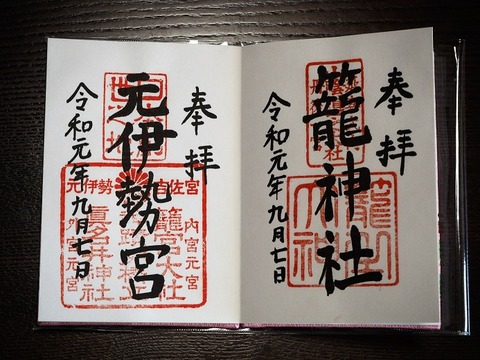 奉拝
籠神社
令和元年九月七日
奉拝
元伊勢宮
令和元年九月七日
元伊勢
吉佐宮
籠宮大社
眞名井神社
内宮元宮
外宮元宮